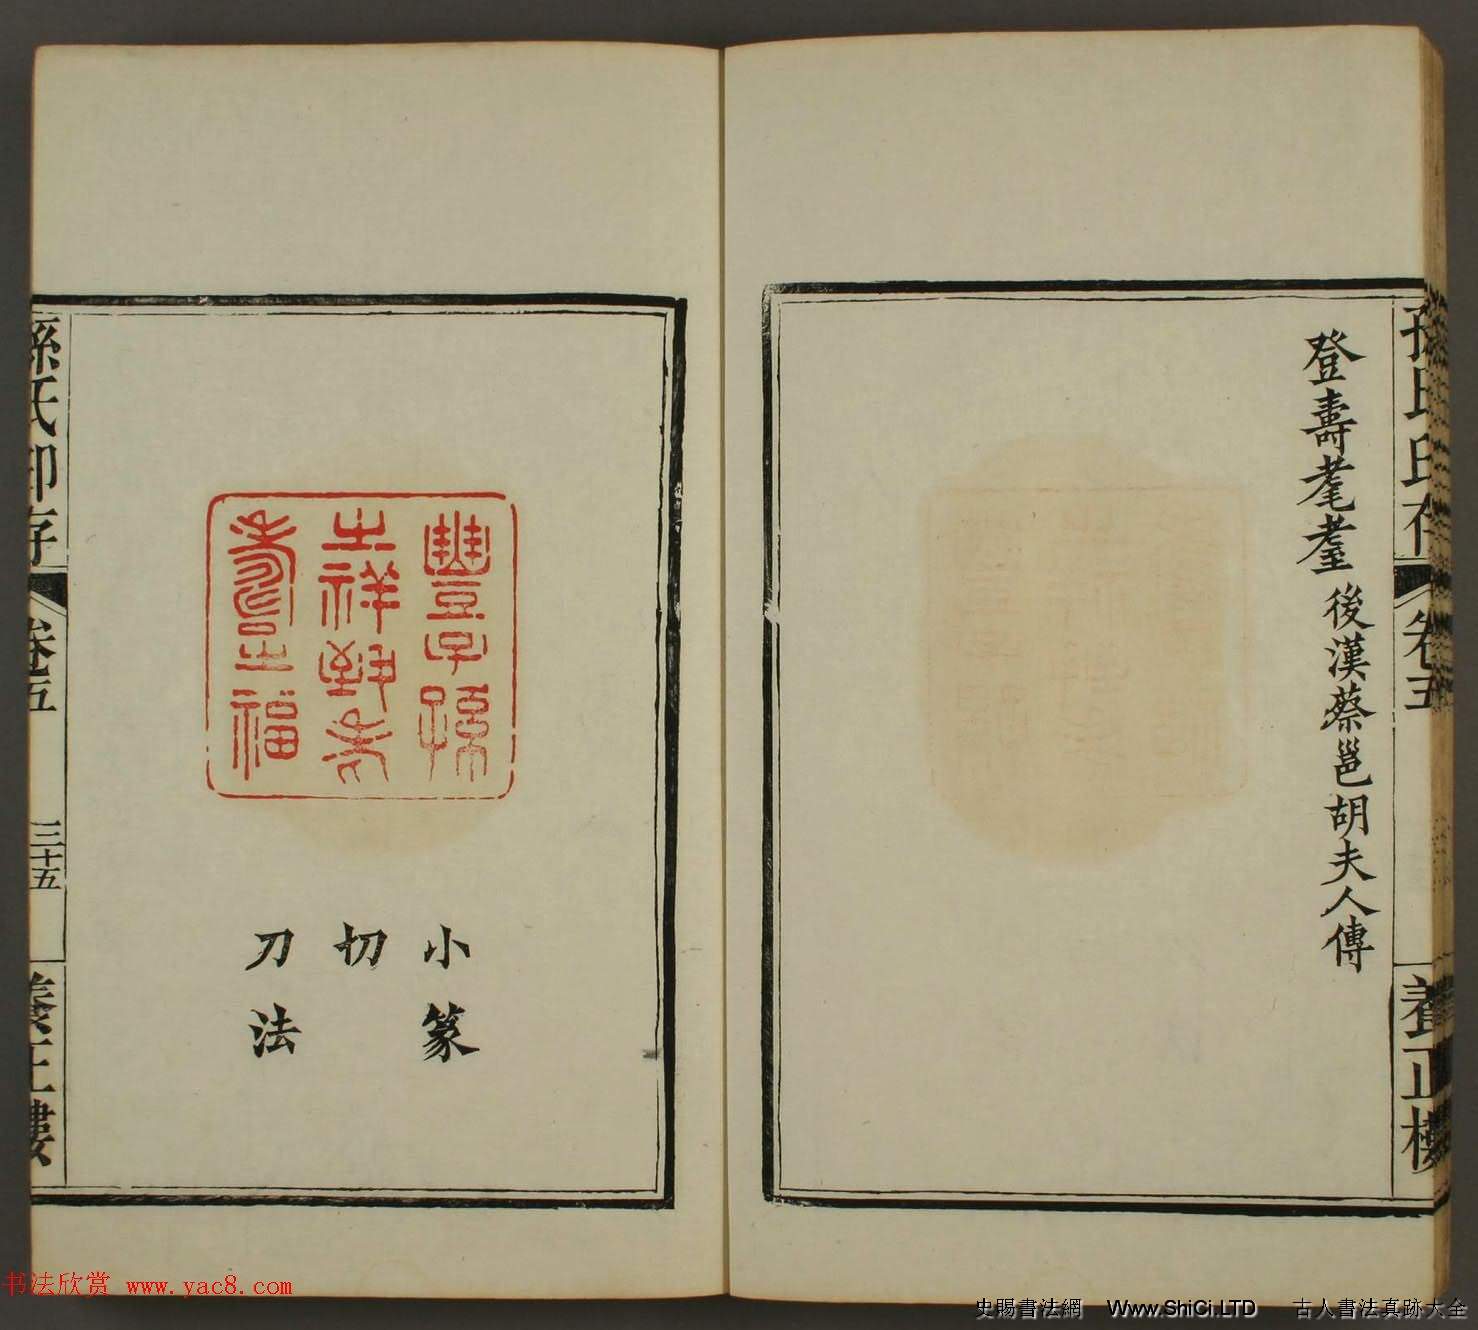 孫氏印存
卷五
養正樓
登壽耄耋 後漢蔡邕胡夫人傳
豐子孫
之祥致老
壽之福
小篆
切
刀法
孫氏印存
卷五
三十五
養正樓
书法欣赏 www.yac8.com
史賜書法網 Www.ShiCi.LTD 古人書法真跡大全